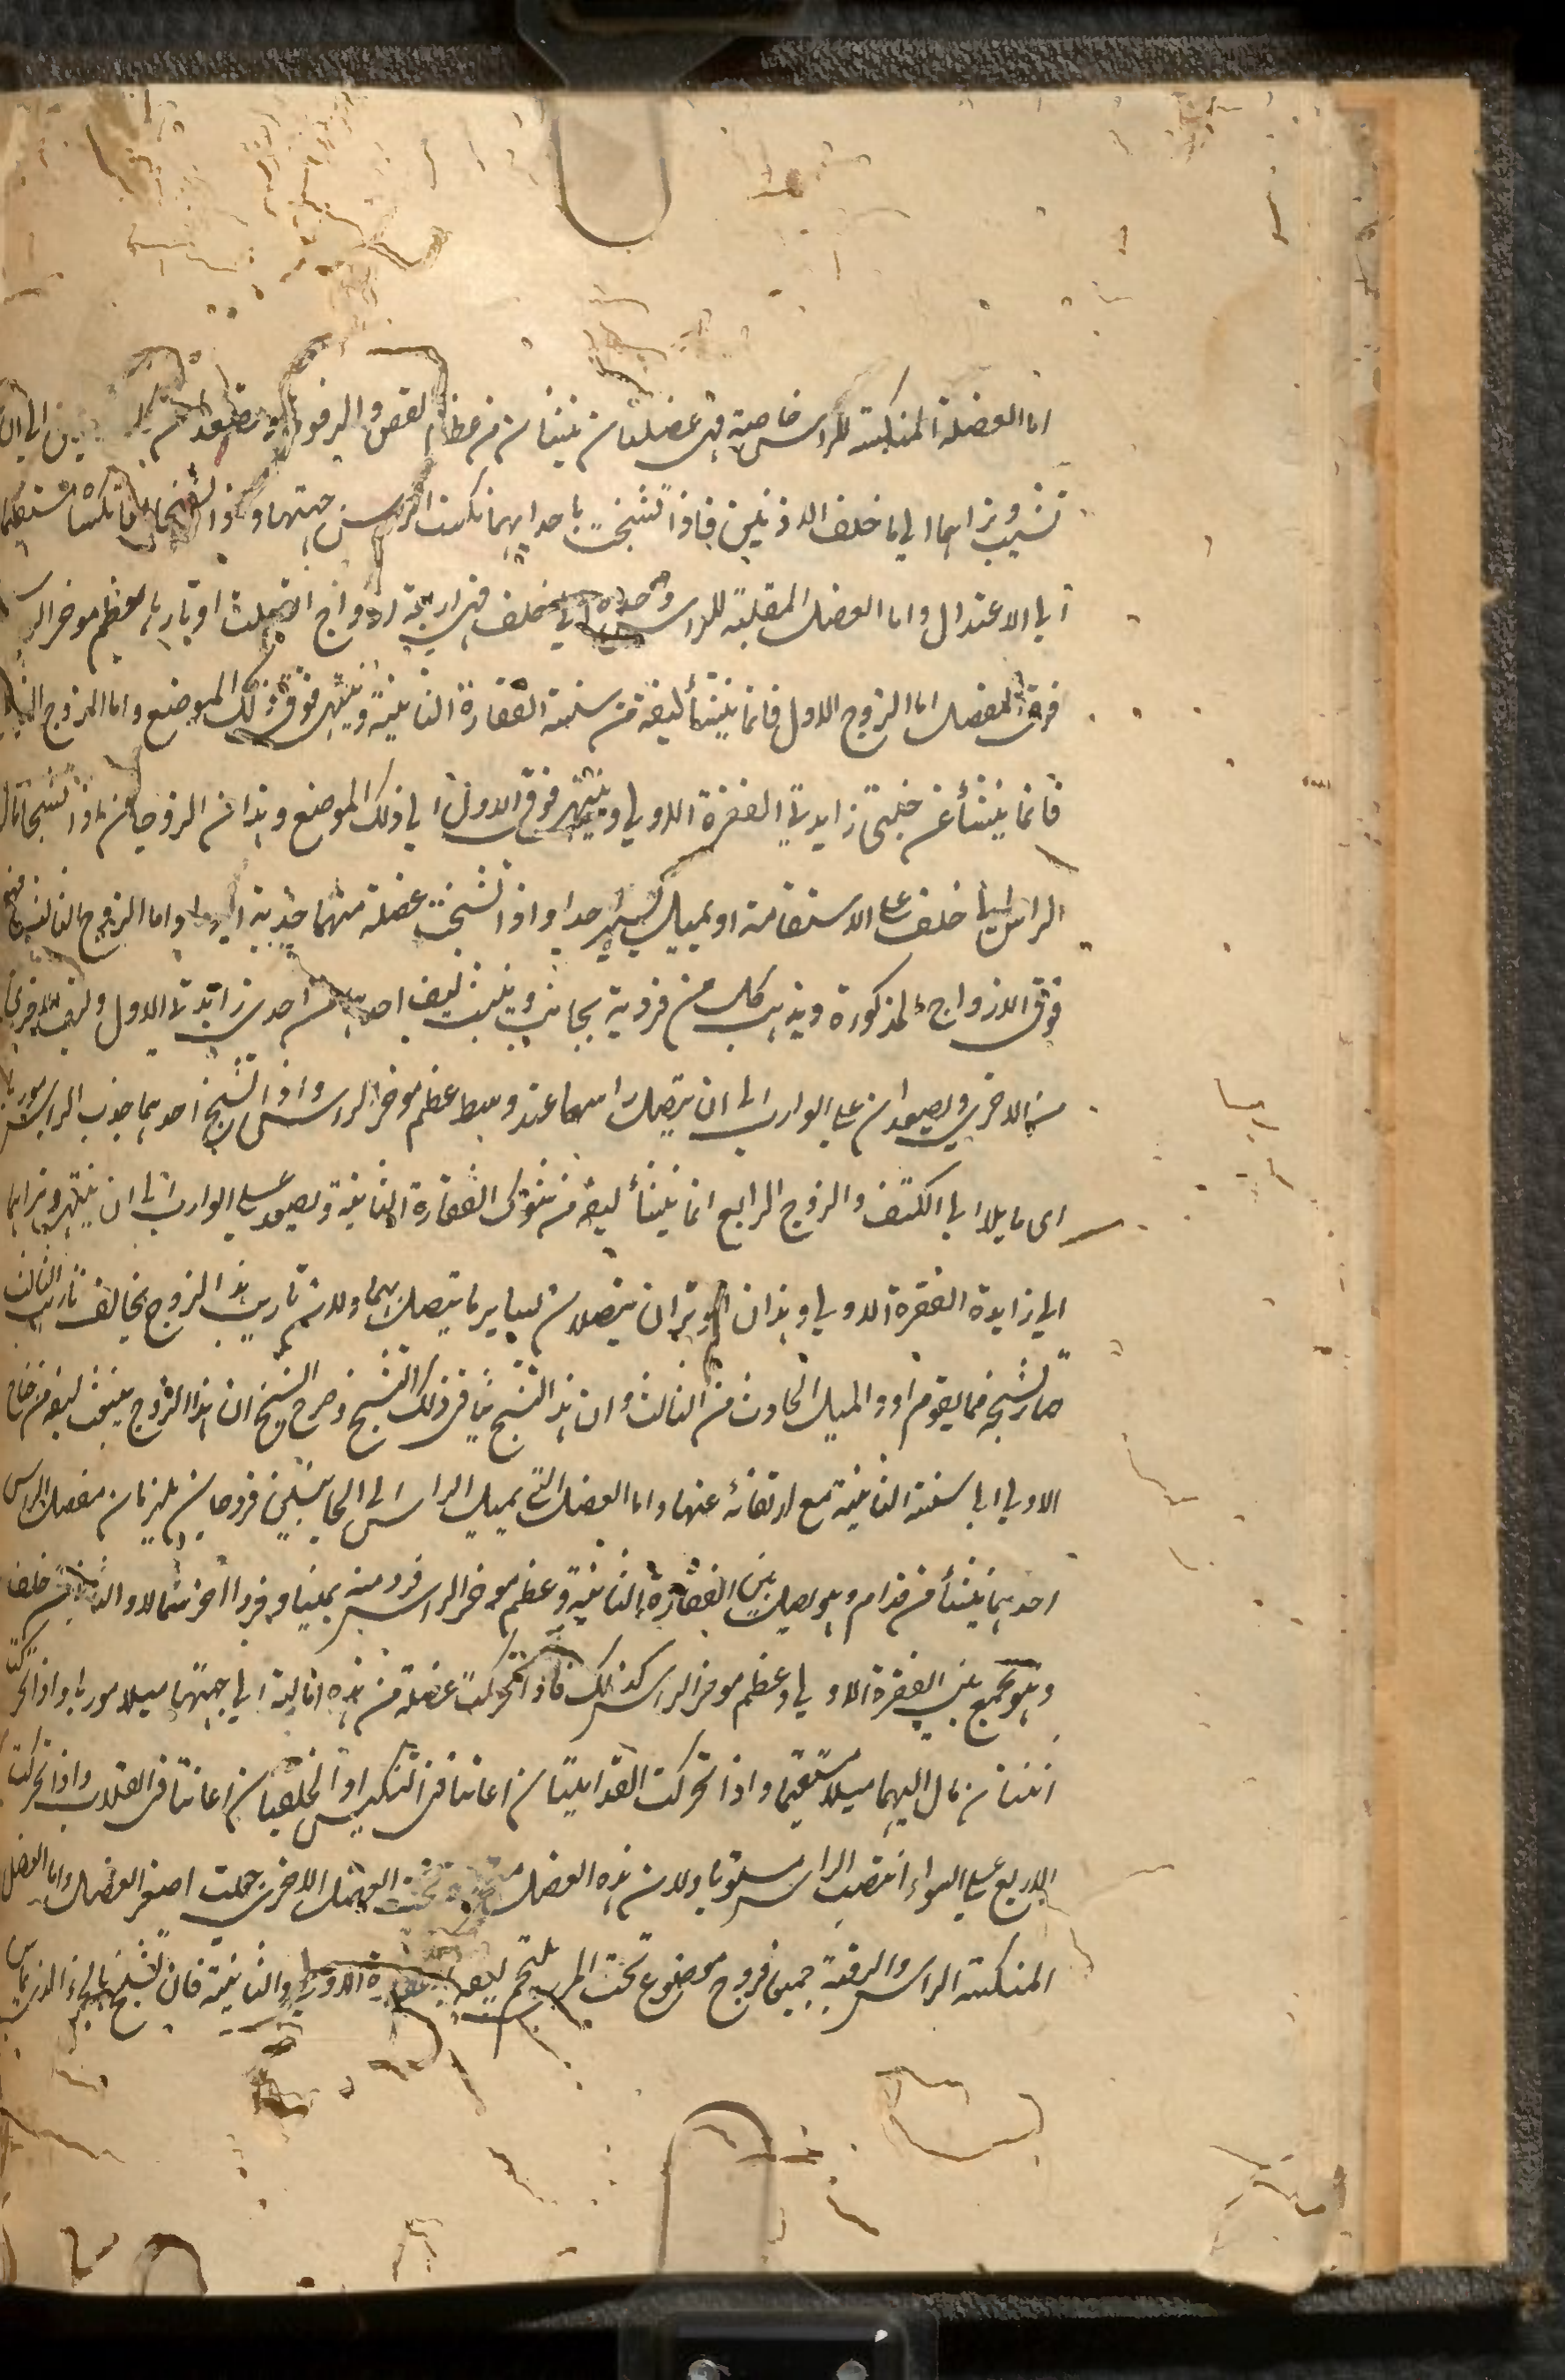 اما العضلة المنكسة للراس خاصة فهى عضلتان تنبتان من عظم القص والترقوة
تشبث وتراهما الى ما خلف الاذنين فاذا تشنجت احداهما نكست الراس الى جهتها واذا تشنجتا معا نكستاه مستقيما
الى الاعتدال واما العضل المقلبة للراس وحده الى خلف فهى اربعة ازواج اتصلت اوتارها بعظم موخر الراس
فوق المفصل اما الزوج الاول فانما ينشأ ليفه من سنسنة الفقارة الثانية وينتهى فوق ذلك الموضع واما الزوج الثانى
فانما ينشأ عن جنبتى زايدتى الفقرة الاولى وينتهى فوق الاول الى ذلك الموضع وهذان الزوجان اذا تشنجا امالا
الراس الى خلف على الاستقامة او بميل يسير جدا واذا تشنجت عضلة منهما جذبته اليها واما الزوج الثالث
فوق الازواج المذكورة ويذهب كل من فرديه بجانب وينبت ليف احدهما من احدى زائدتى الاول وليف الاخرى
من الاخرى ويصعدان على الوارب الى ان يتصل راسهما عند وسط عظم موخر الراس واذا تشنج احدهما جذب الراس موربا
اى مايلا الى الكتف والزوج الرابع انما ينشأ ليفه من شوكى الفقارة الثانية ويصعد على الوارب الى ان ينتهى وتراهما
الى زايدة الفقرة الاولى وهذان الوتران يتصلان بساير ما يتصل بهما ولان تاريب هذا الزوج يخالف تاريب الثالث
صار تشنجه مما يقوم اود الميل الحادث من الثالث وان هذا التشنج ينافى ذلك التشنج وصرح الشيخ ان هذا الزوج ينبت ليفه من جناح
الاولى الى سنسنة الثانية مع ارتفائه عنها واما العضل التى تميل الراس الى الجانبين فزوجان يلزمان مفصل الراس
احدهما ينشأ من قدام وهو يصل بين الفقارة الثانية وعظم موخر الراس فرد منه يمينا وفرد اخر شمالا والثانى من خلف
وهو يجمع بين الفقرة الاولى وعظم موخر الراس كذلك فاذا تحركت عضلة من هذه امالته الى جهتها ميلا موربا واذا تحركت
اثنتان مال اليهما ميلا مستقيما واذا تحركت القداميتان اعانتا فى التنكيس او الخلفيتان اعانتا فى القلب واذا تحركت
الاربع على السواء انتصب الراس مستويا ولان هذه العضل تحت العضل الاخرى جعلت اصغر العضل واما العضل
المنكسة الراس والرقبة جميعا فزوج موضوع تحت المرى يلتحم ليفه الاولى والثانية فان تشنج بالجزء الذى يماس